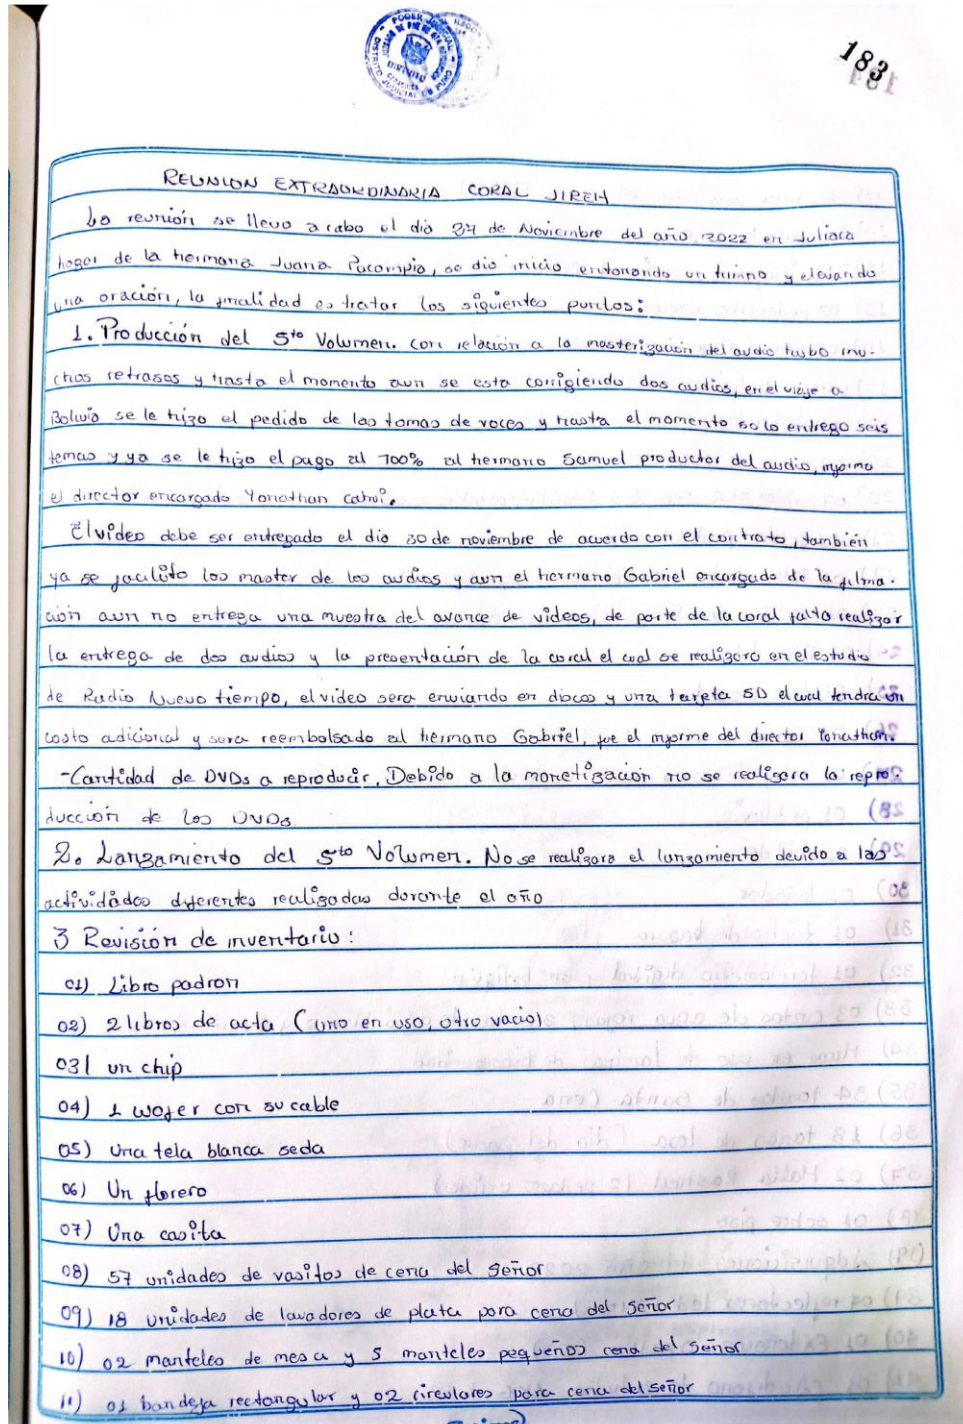 PODER JUDICIAL
DISTRITO JUDICIAL DE PUNO
183
REUNION EXTRAORDINARIA CORAL JIREH
La reunión se llevo a cabo el dia 27 de Noviembre del año 2022 en Juliaca
hogar de la hermana Juana Pocompia, se dio inicio entonando un himno y elevando
una oración, la finalidad es tratar los siguientes puntos:
1. Producción del 5to Volumen. con relación a la masterización del audio tubo mu-
chos retrasos y hasta el momento aun se esta corrigiendo dos audios, en el viaje a
Bolivia se le hizo el pedido de las tomas de voces y hasta el momento solo entrego seis
temas y ya se le hizo el pago al 100% al hermano Samuel productor del audio, informo
el director encargado Yonathan
El video debe ser entregado el dia 30 de noviembre de acuerdo con el contrato, también
ya se facilito los master de los audios y aun el hermano Gabriel encargado de la filma-
ción aun no entrega una muestra del avance de videos, de parte de la coral falta realizar
la entrega de dos audios y la presentación de la coral el cual se realizara en el estudio
de Radio Nuevo tiempo, el video sera enviando en discos y una tarjeta SD el cual tendra un
costo adicional y sera reembolsado al hermano Gabriel, fue el informe del director Yonathan.
-Cantidad de DVDs a reproducir, Debido a la monetización no se realizara la repro-
ducción de los DVDs
2. Lanzamiento del 5to Volumen. No se realizara el lanzamiento devido a las
actividades diferentes realizadas durante el año
3 Revisión de inventario:
01) Libro padron
02) 2 libros de acta (uno en uso, otro vacio)
03) un chip
04) 1 wofer con su cable
05) Una tela blanca seda
06) Un florero
07) Una casita
08) 57 unidades de vasitos de cena del Señor
09) 18 unidades de lavadores de plata para cena del señor
10) 02 manteles de mesa y 5 manteles pequeños cena del Señor
11) 01 bandeja rectangular y 02 circulares para cena del señor